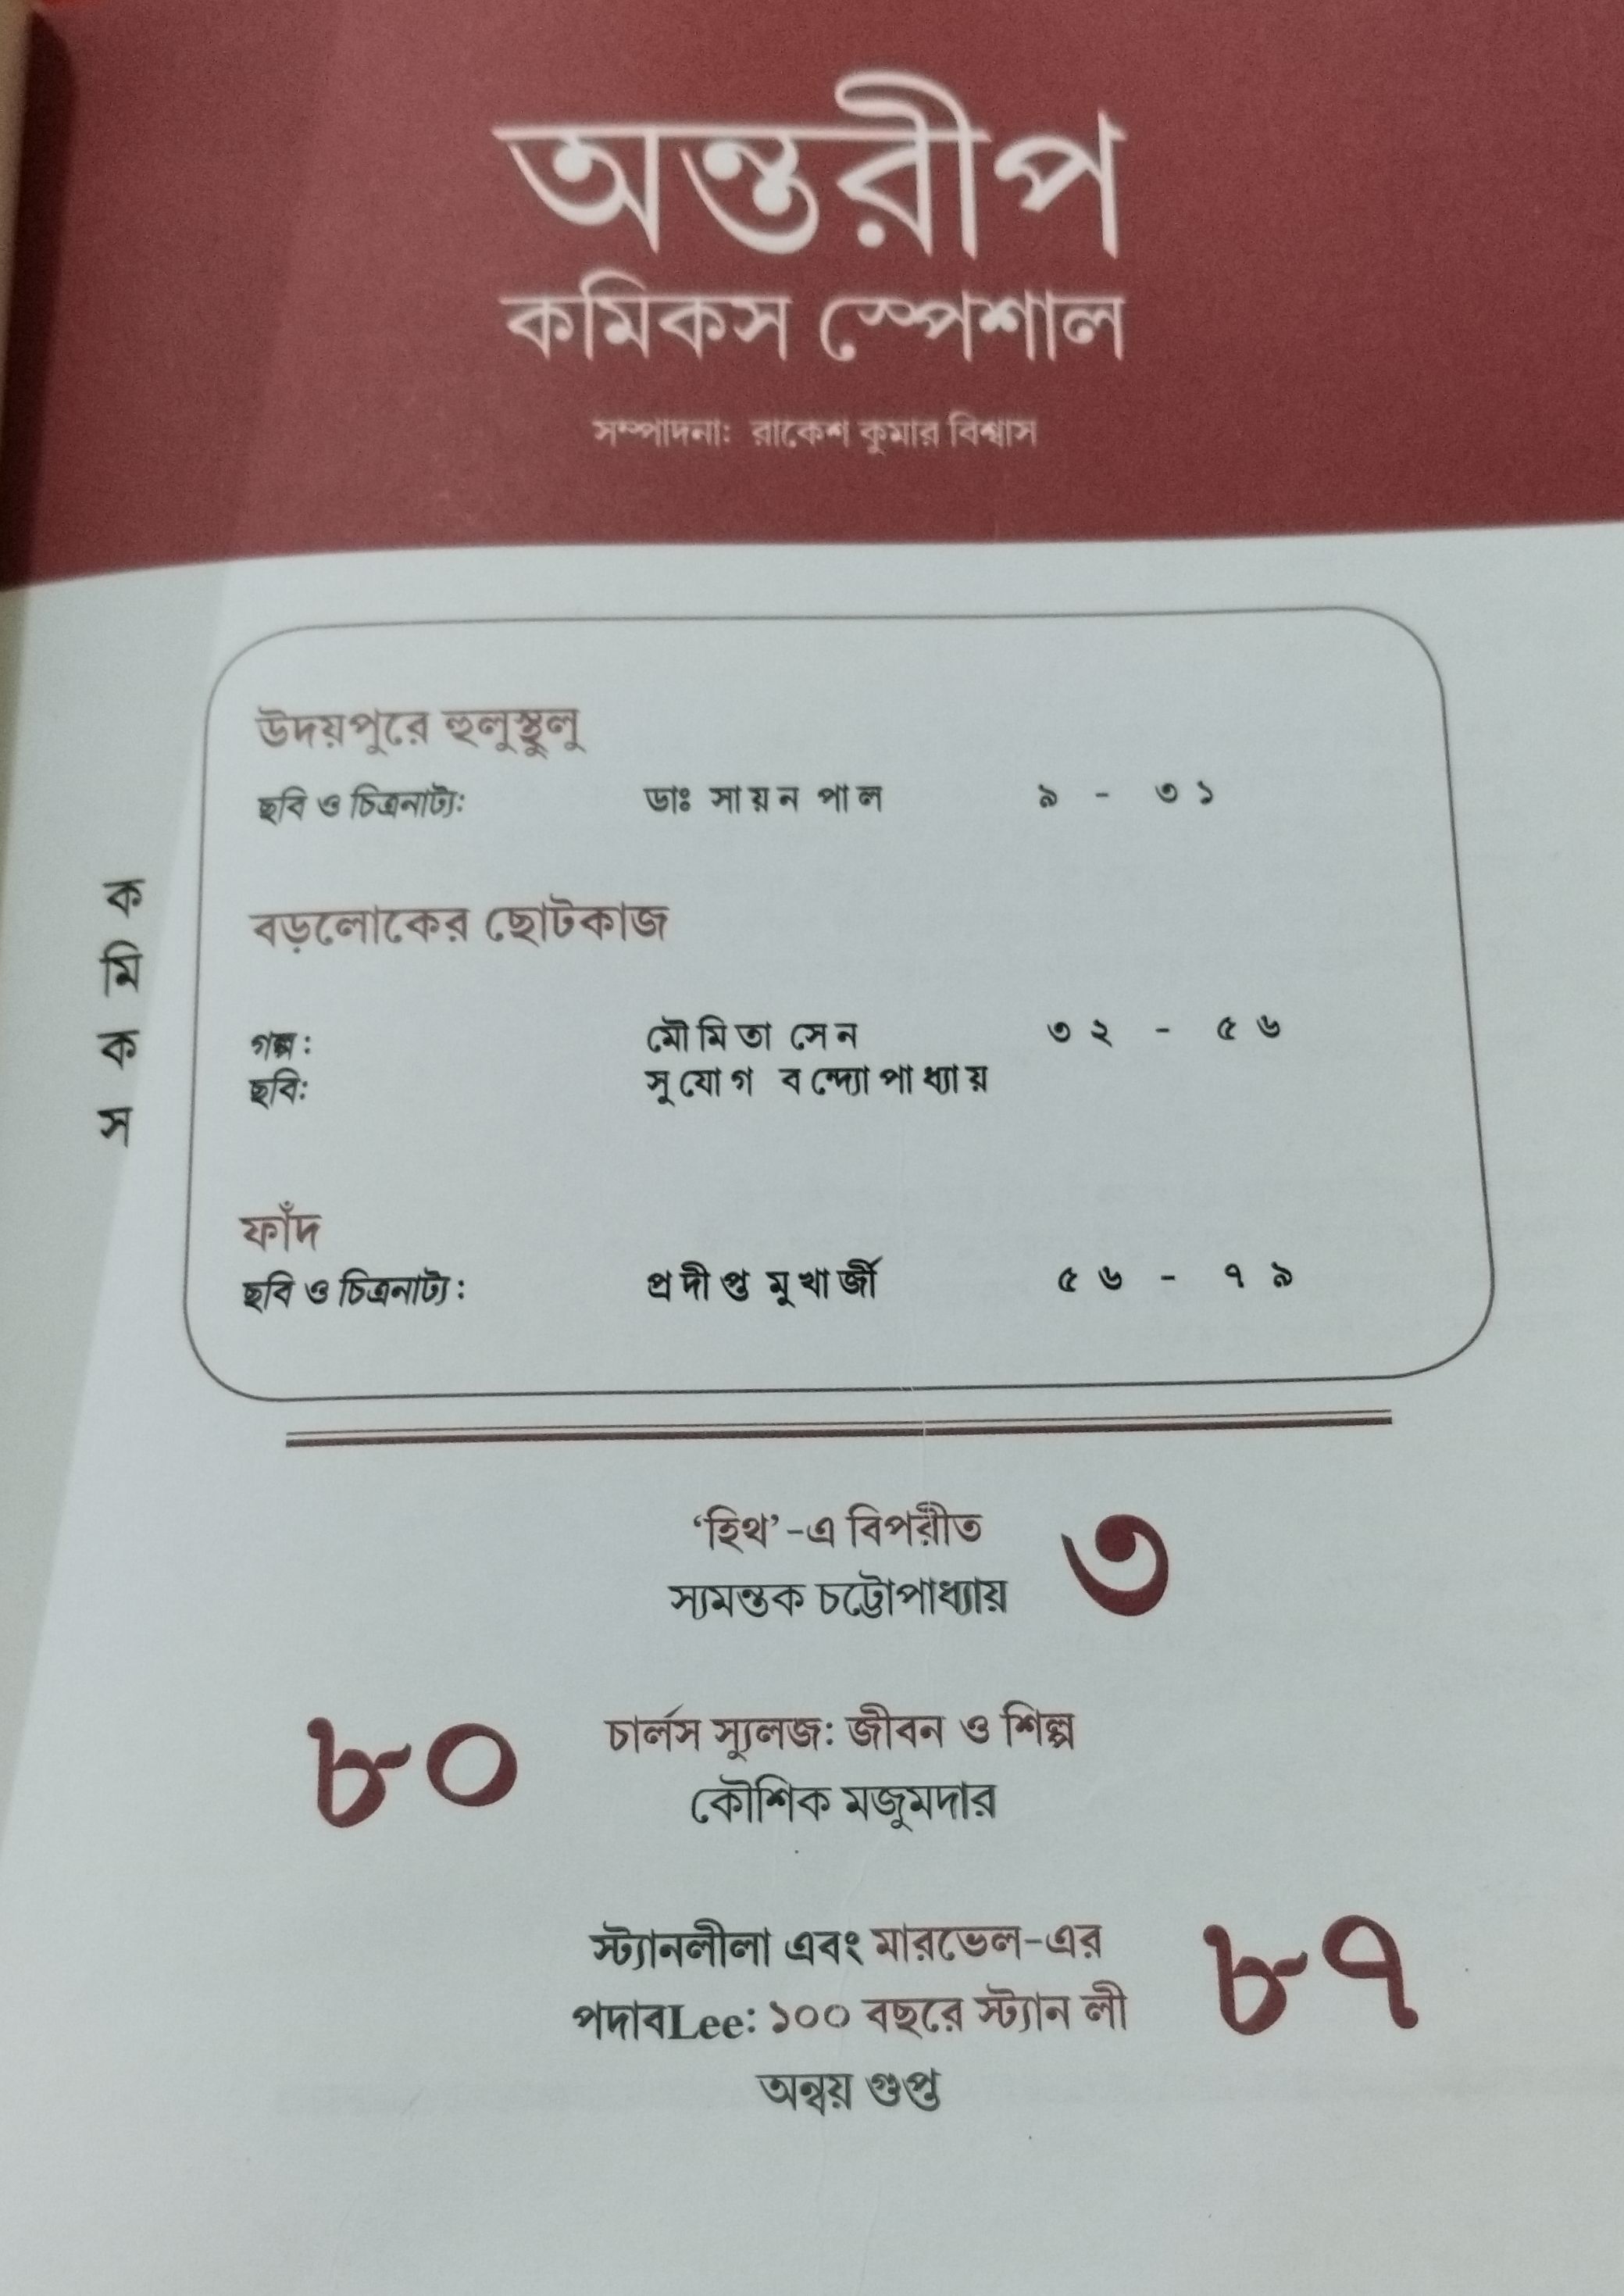 অন্তরীপ
কমিকস স্পেশাল
সম্পাদনা: রাকেশ কুমার বিশ্বাস
কমিকস
উদয়পুরে হুলুস্থুলু
ছবি ও চিত্রনাট্য: ডাঃ সায়ন পাল ৯ - ৩১
বড়লোকের ছোটকাজ
গল্প: মৌমিতা সেন ৩২ - ৫৬
ছবি: সুযোগ বন্দ্যোপাধ্যায়
ফাঁদ
ছবি ও চিত্রনাট্য: প্রদীপ্ত মুখার্জী ৫৬ - ৭৯
‘হিথ’-এ বিপরীত ৩
স্যমন্তক চট্টোপাধ্যায়
৮০ চার্লস স্যুলজ: জীবন ও শিল্প
কৌশিক মজুমদার
স্ট্যানলীলা এবং মারভেল-এর ৮৭
পদাবLee: ১০০ বছরে স্ট্যান লী
অন্বয় গুপ্ত